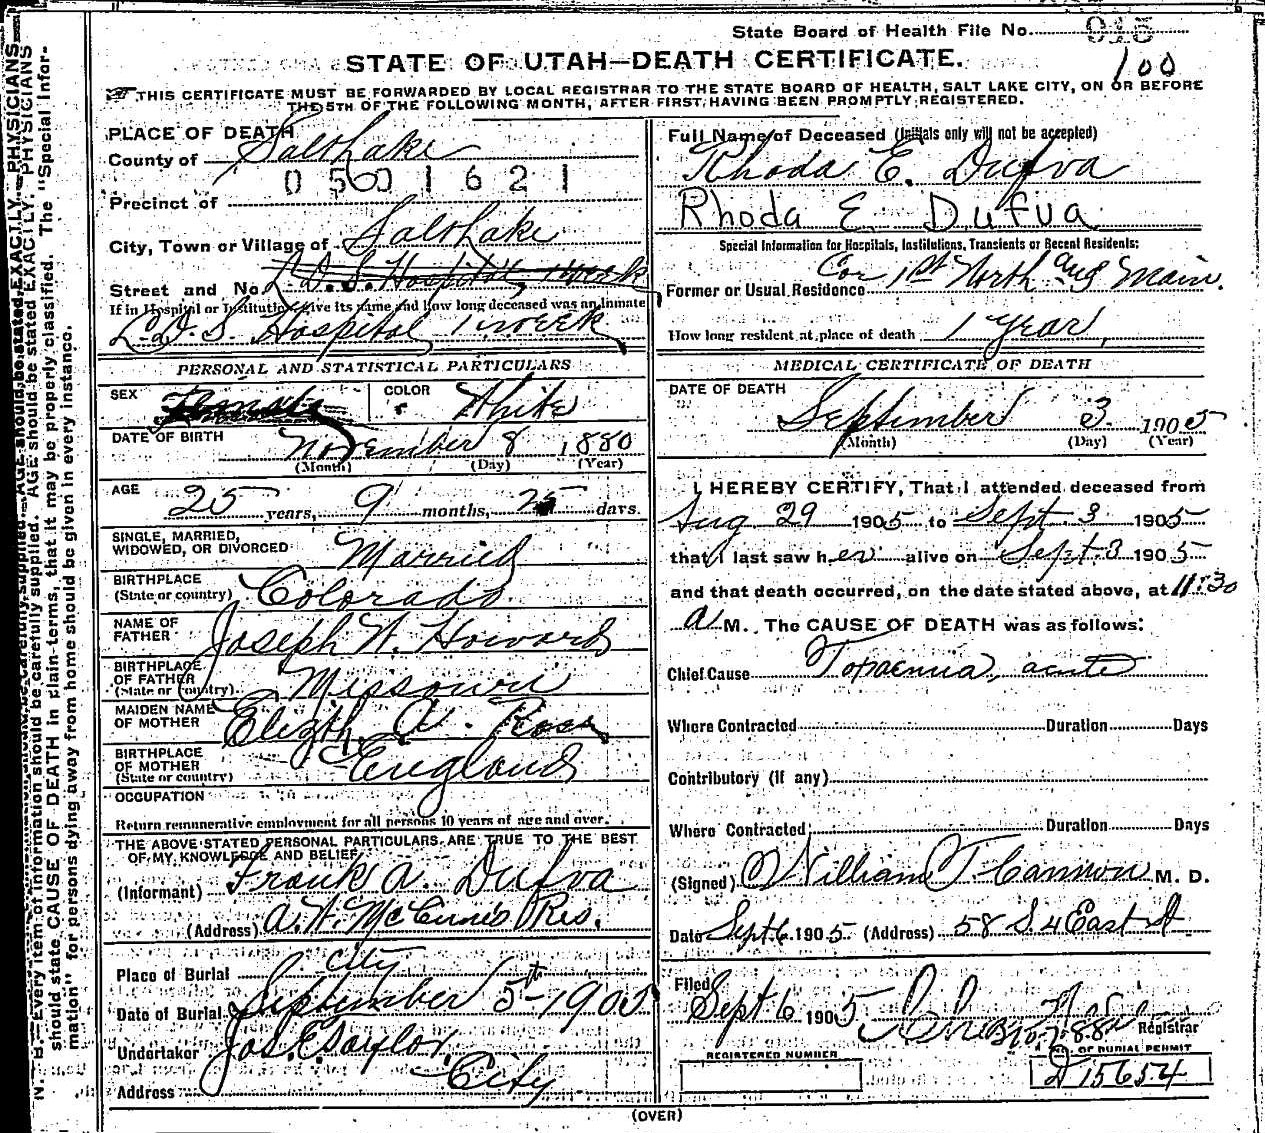 State Board of Health File No. 915
100
STATE OF UTAH—DEATH CERTIFICATE.
THIS CERTIFICATE MUST BE FORWARDED BY LOCAL REGISTRAR TO THE STATE BOARD OF HEALTH, SALT LAKE CITY, ON OR BEFORE
THE 5TH OF THE FOLLOWING MONTH, AFTER FIRST HAVING BEEN PROMPTLY REGISTERED.
PLACE OF DEATH
County of Salt Lake
0501621
Precinct of
City, Town or Village of Salt Lake
Street and No. L.D.S. Hospital, 1 week
If in Hospital or Institution, give its name and how long deceased was an inmate
L.D.S. Hospital 1 week
PERSONAL AND STATISTICAL PARTICULARS
SEX Female COLOR White
DATE OF BIRTH November 8 1880
(Month) (Day) (Year)
AGE 25 years, 9 months, 25 days.
SINGLE, MARRIED,
WIDOWED, OR DIVORCED Married
BIRTHPLACE
(State or country) Colorado
NAME OF
FATHER Joseph W. Howard
BIRTHPLACE
OF FATHER
(State or country) Missouri
MAIDEN NAME
OF MOTHER Elizth. A. Ross
BIRTHPLACE
OF MOTHER
(State or country) England
OCCUPATION
Return remunerative employment for all persons 10 years of age and over.
THE ABOVE STATED PERSONAL PARTICULARS ARE TRUE TO THE BEST
OF MY KNOWLEDGE AND BELIEF
(Informant) Frank A. Dufva
(Address) A. W. McCune's Res.
Place of Burial City
Date of Burial September 5th 1905
Undertaker Jos. E. Taylor
Address City
Full Name of Deceased (Initials only will not be accepted)
Rhoda E. Dufva
Rhoda E Dufva
Special Information for Hospitals, Institutions, Transients or Recent Residents:
Former or Usual Residence Cor 1st North and Main.
How long resident at place of death 1 year,
MEDICAL CERTIFICATE OF DEATH
DATE OF DEATH
September 3 1905
(Month) (Day) (Year)
I HEREBY CERTIFY, That I attended deceased from
Aug 29 1905 to Sept. 3 1905
that I last saw her alive on Sept. 3 1905
and that death occurred, on the date stated above, at 11:30
A M. The CAUSE OF DEATH was as follows:
Chief Cause Toxaemia, acute
Where Contracted Duration Days
Contributory (if any)
Where Contracted Duration Days
(Signed) William T. Cannon M. D.
Date Sept. 6. 1905 (Address) 58 S. 4 East St
Filed
Sept 6 1905 Registrar
REGISTERED NUMBER
No. OF BURIAL PERMIT
D 15654
(OVER)
N. B.—Every item of information should be carefully supplied. AGE should be stated EXACTLY. PHYSICIANS
should state CAUSE OF DEATH in plain terms, that it may be properly classified. The "Special Infor-
mation" for persons dying away from home should be given in every instance.